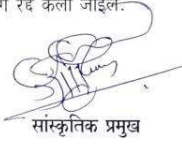 रद्द केली जाईल.
सांस्कृतिक प्रमुख